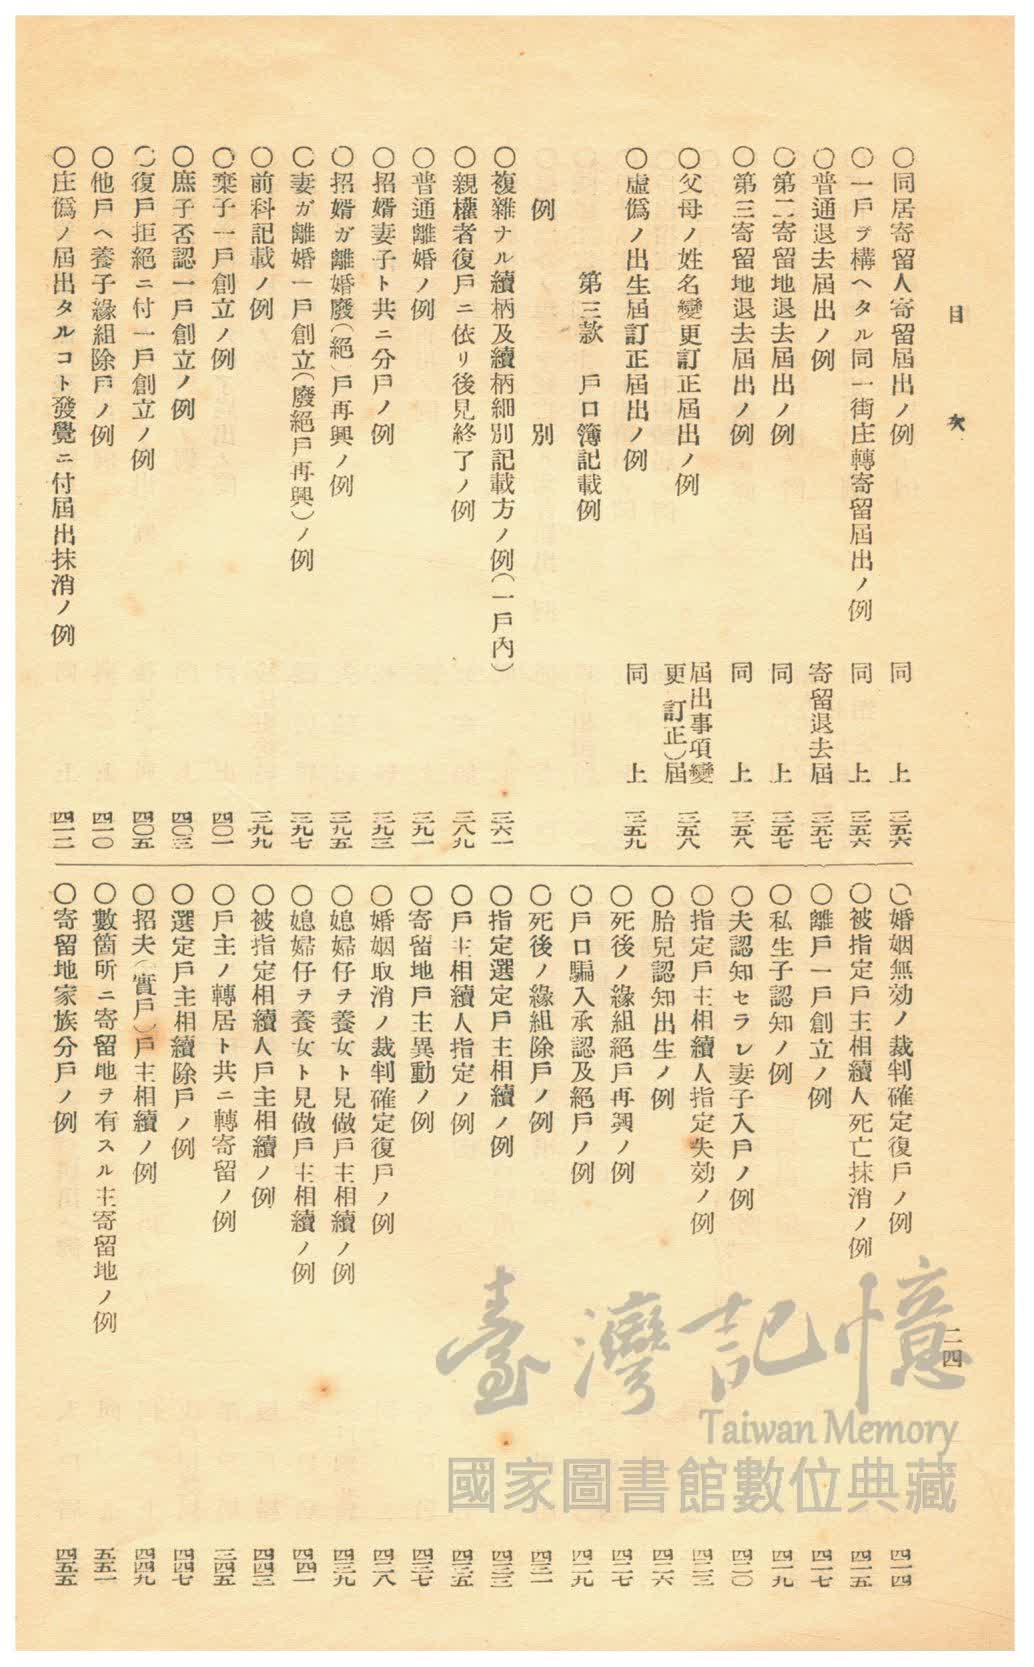 目次
〇同居寄留人寄留屆出ノ例 同上 三五六
〇一戶ヲ構ヘタル同一街庄轉寄留屆出ノ例 同上 三五六
〇普通退去屆出ノ例 寄留退去屆 三五七
〇第二寄留地退去屆出ノ例 同上 三五七
〇第三寄留地退去屆出ノ例 同上 三五八
〇父母ノ姓名變更訂正屆出ノ例 屆出事項變更(訂正)屆 三五八
〇虛僞ノ出生屆訂正屆出ノ例 同上 三五九
第三款 戶口簿記載例
例別
〇複雜ナル續柄及續柄細別記載方ノ例(一戶內) 三六一
〇親權者復戶ニ依リ後見終了ノ例 三八九
〇普通離婚ノ例 三九一
〇招婿妻子ト共ニ分戶ノ例 三九三
〇招婿ガ離婚廢(絕)戶再興ノ例 三九五
〇妻ガ離婚一戶創立(廢絕戶再興)ノ例 三九七
〇前科記載ノ例 三九九
〇棄子一戶創立ノ例 四〇一
〇庶子否認一戶創立ノ例 四〇三
〇復戶拒絕ニ付一戶創立ノ例 四〇五
〇他戶ヘ養子緣組除戶ノ例 四一〇
〇庄僞ノ屆出タルコト發覺ニ付屆出抹消ノ例 四一二
〇婚姻無効ノ裁判確定復戶ノ例 四一四
〇被指定戶主相續人死亡抹消ノ例 四一五
〇離戶一戶創立ノ例 四一七
〇私生子認知ノ例 四一九
〇夫認知セラレ妻子入戶ノ例 四二〇
〇指定戶主相續人指定失効ノ例 四二三
〇胎兒認知出生ノ例 四二六
〇死後ノ緣組絕戶再興ノ例 四二七
〇戶口騙入承認及絕戶ノ例 四二九
〇死後ノ緣組除戶ノ例 四三一
〇指定選定戶主相續ノ例 四三三
〇戶主相續人指定ノ例 四三五
〇寄留地戶主異動ノ例 四三七
〇婚姻取消ノ裁判確定復戶ノ例 四三八
〇媳婦仔ヲ養女ト見做戶主相續ノ例 四三九
〇媳婦仔ヲ養女ト見做戶主相續ノ例 四四一
〇被指定相續人戶主相續ノ例 四四三
〇戶主ノ轉居ト共ニ轉寄留ノ例 三四五
〇選定戶主相續除戶ノ例 四四七
〇招夫(實戶)戶主相續ノ例 四四九
〇數箇所ニ寄留地ヲ有スル主寄留地ノ例 五五一
〇寄留地家族分戶ノ例 四五五
二四
臺灣記憶
Taiwan Memory
國家圖書館數位典藏